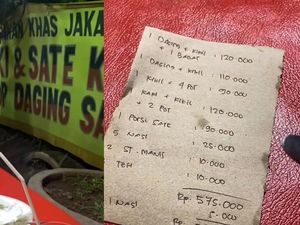 KHAS JAKA
& SATE K
DAGING SA
1 DAGING + KIKIL
+ 1 BABAT 120.000
DAGING + KIKIL 110.000
1 KIKIL + POT 90.000
1 KAKI + KIKIL
+ 2 POT 120.000
1 PORSI SATE 90.000
5 NASI 25.000
2 ST. MANIS 10.000
TEH 10.000
Rp. 575.000
1 NASI 5.000